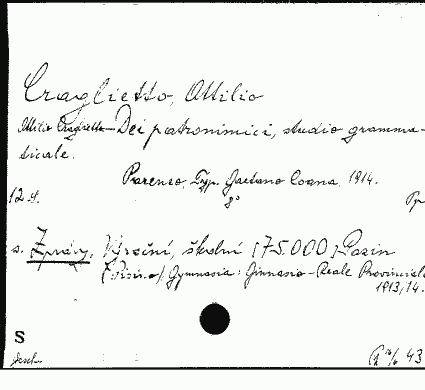 Craglietto, Attilio
Attilio Craglietto - Dei patronimici, studio gramma-
ticale.
Parenzo, Typ. Gaetano Coana, 1914.
12 st. 8°
s. Zprávy, Výroční, školní [75.000] Pazin
(Pisino), Gymnasia: Ginnasio-Reale Provinciale
1913/14.
S
43